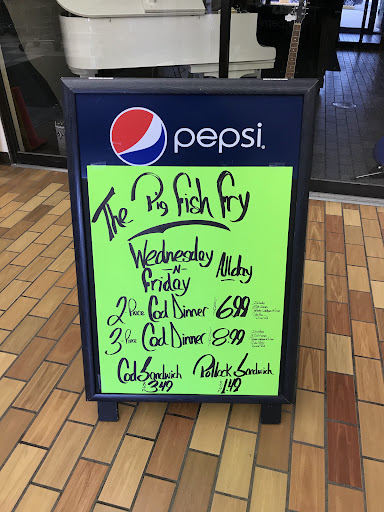 pepsi
The Pig Fish Fry
Wednesday
-N-
Friday
All day
2 Piece Cod Dinner 6.99
3 Piece Cod Dinner 8.99
Cod Sandwich
3.49
Pollock Sandwich
1.49